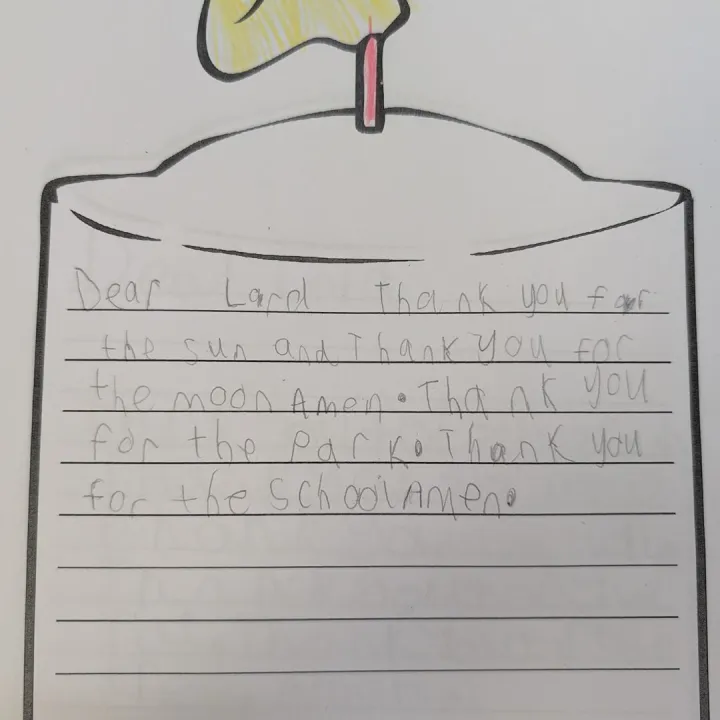 Dear Lard Thank you for
the sun and Thank you for
the moon Amen. Thank you
for the park. Thank you
for the school Amen.